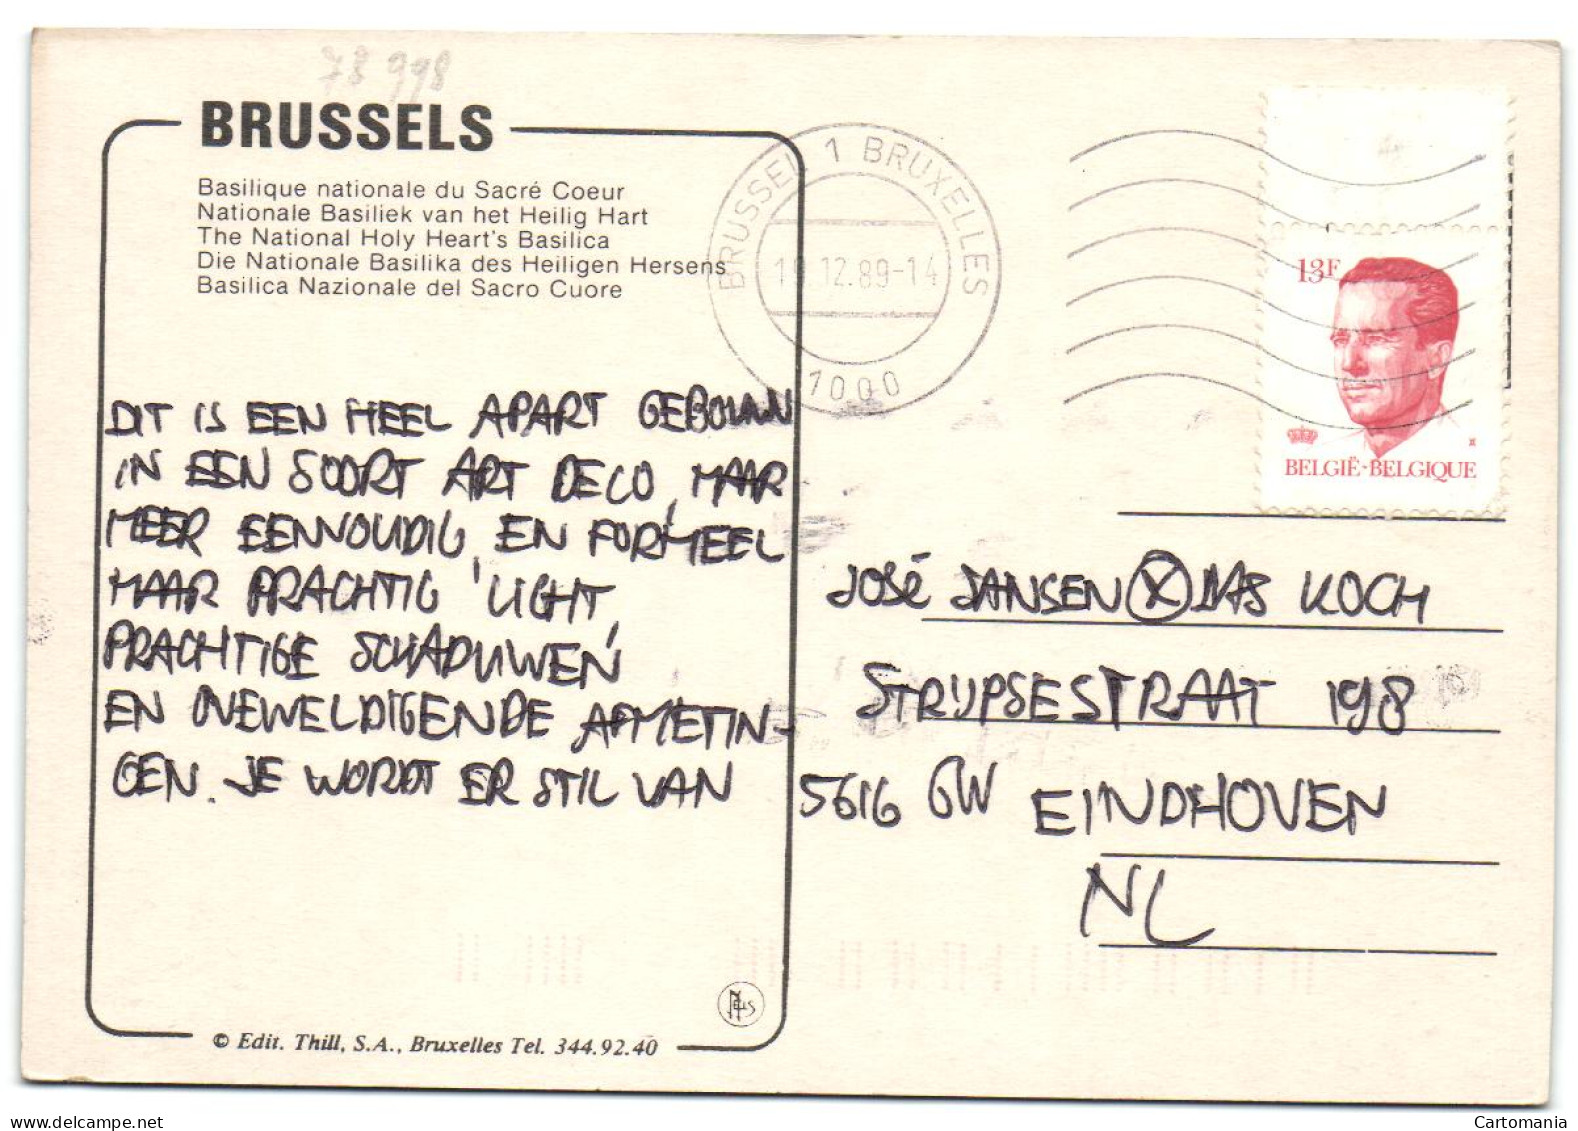 78 998
BRUSSELS
Basilique nationale du Sacré Coeur
Nationale Basiliek van het Heilig Hart
The National Holy Heart's Basilica
Die Nationale Basilika des Heiligen Hersens
Basilica Nazionale del Sacro Cuore
BRUSSEL 1 BRUXELLES
19.12.89-14
1000
13F
BELGIË-BELGIQUE
DIT IS EEN HEEL APART GEBOUW
IN EEN SOORT ART DECO, MAAR
MEER EENVOUDIG, EN FORMEEL
MAAR PRACHTIG LICHT,
PRACHTIGE SCHADUWEN
EN GEWELDIGENDE AFMETIN-
GEN. JE WORDT ER STIL VAN
JOSÉ JANSEN KOCH
STRIJPSESTRAAT 198
5616 GW EINDHOVEN
NL
© Edit. Thill, S.A., Bruxelles Tel. 344.92.40
Cartomania